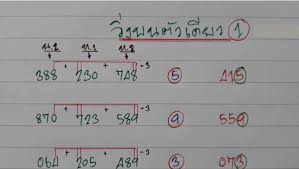 วิ่งบนตัวเดียว 1
388 + 230 + 748 -3 5 415
870 + 723 + 589 -3 9 559
064 + 205 + 489 -3 3 073